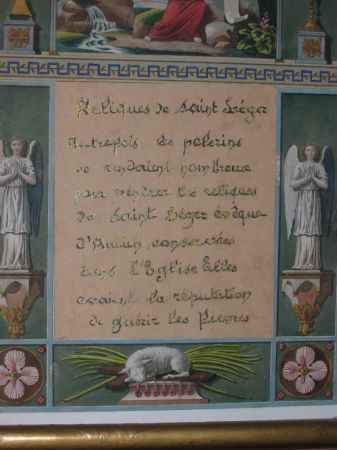 Reliques de Saint Léger
Autrefois des pelerins
se rendaient nombreux
pour vénérer les reliques
de Saint Léger évêque
d'Autun conservées
dans l'Eglise Elles
avaient la réputation
de guérir les fievres